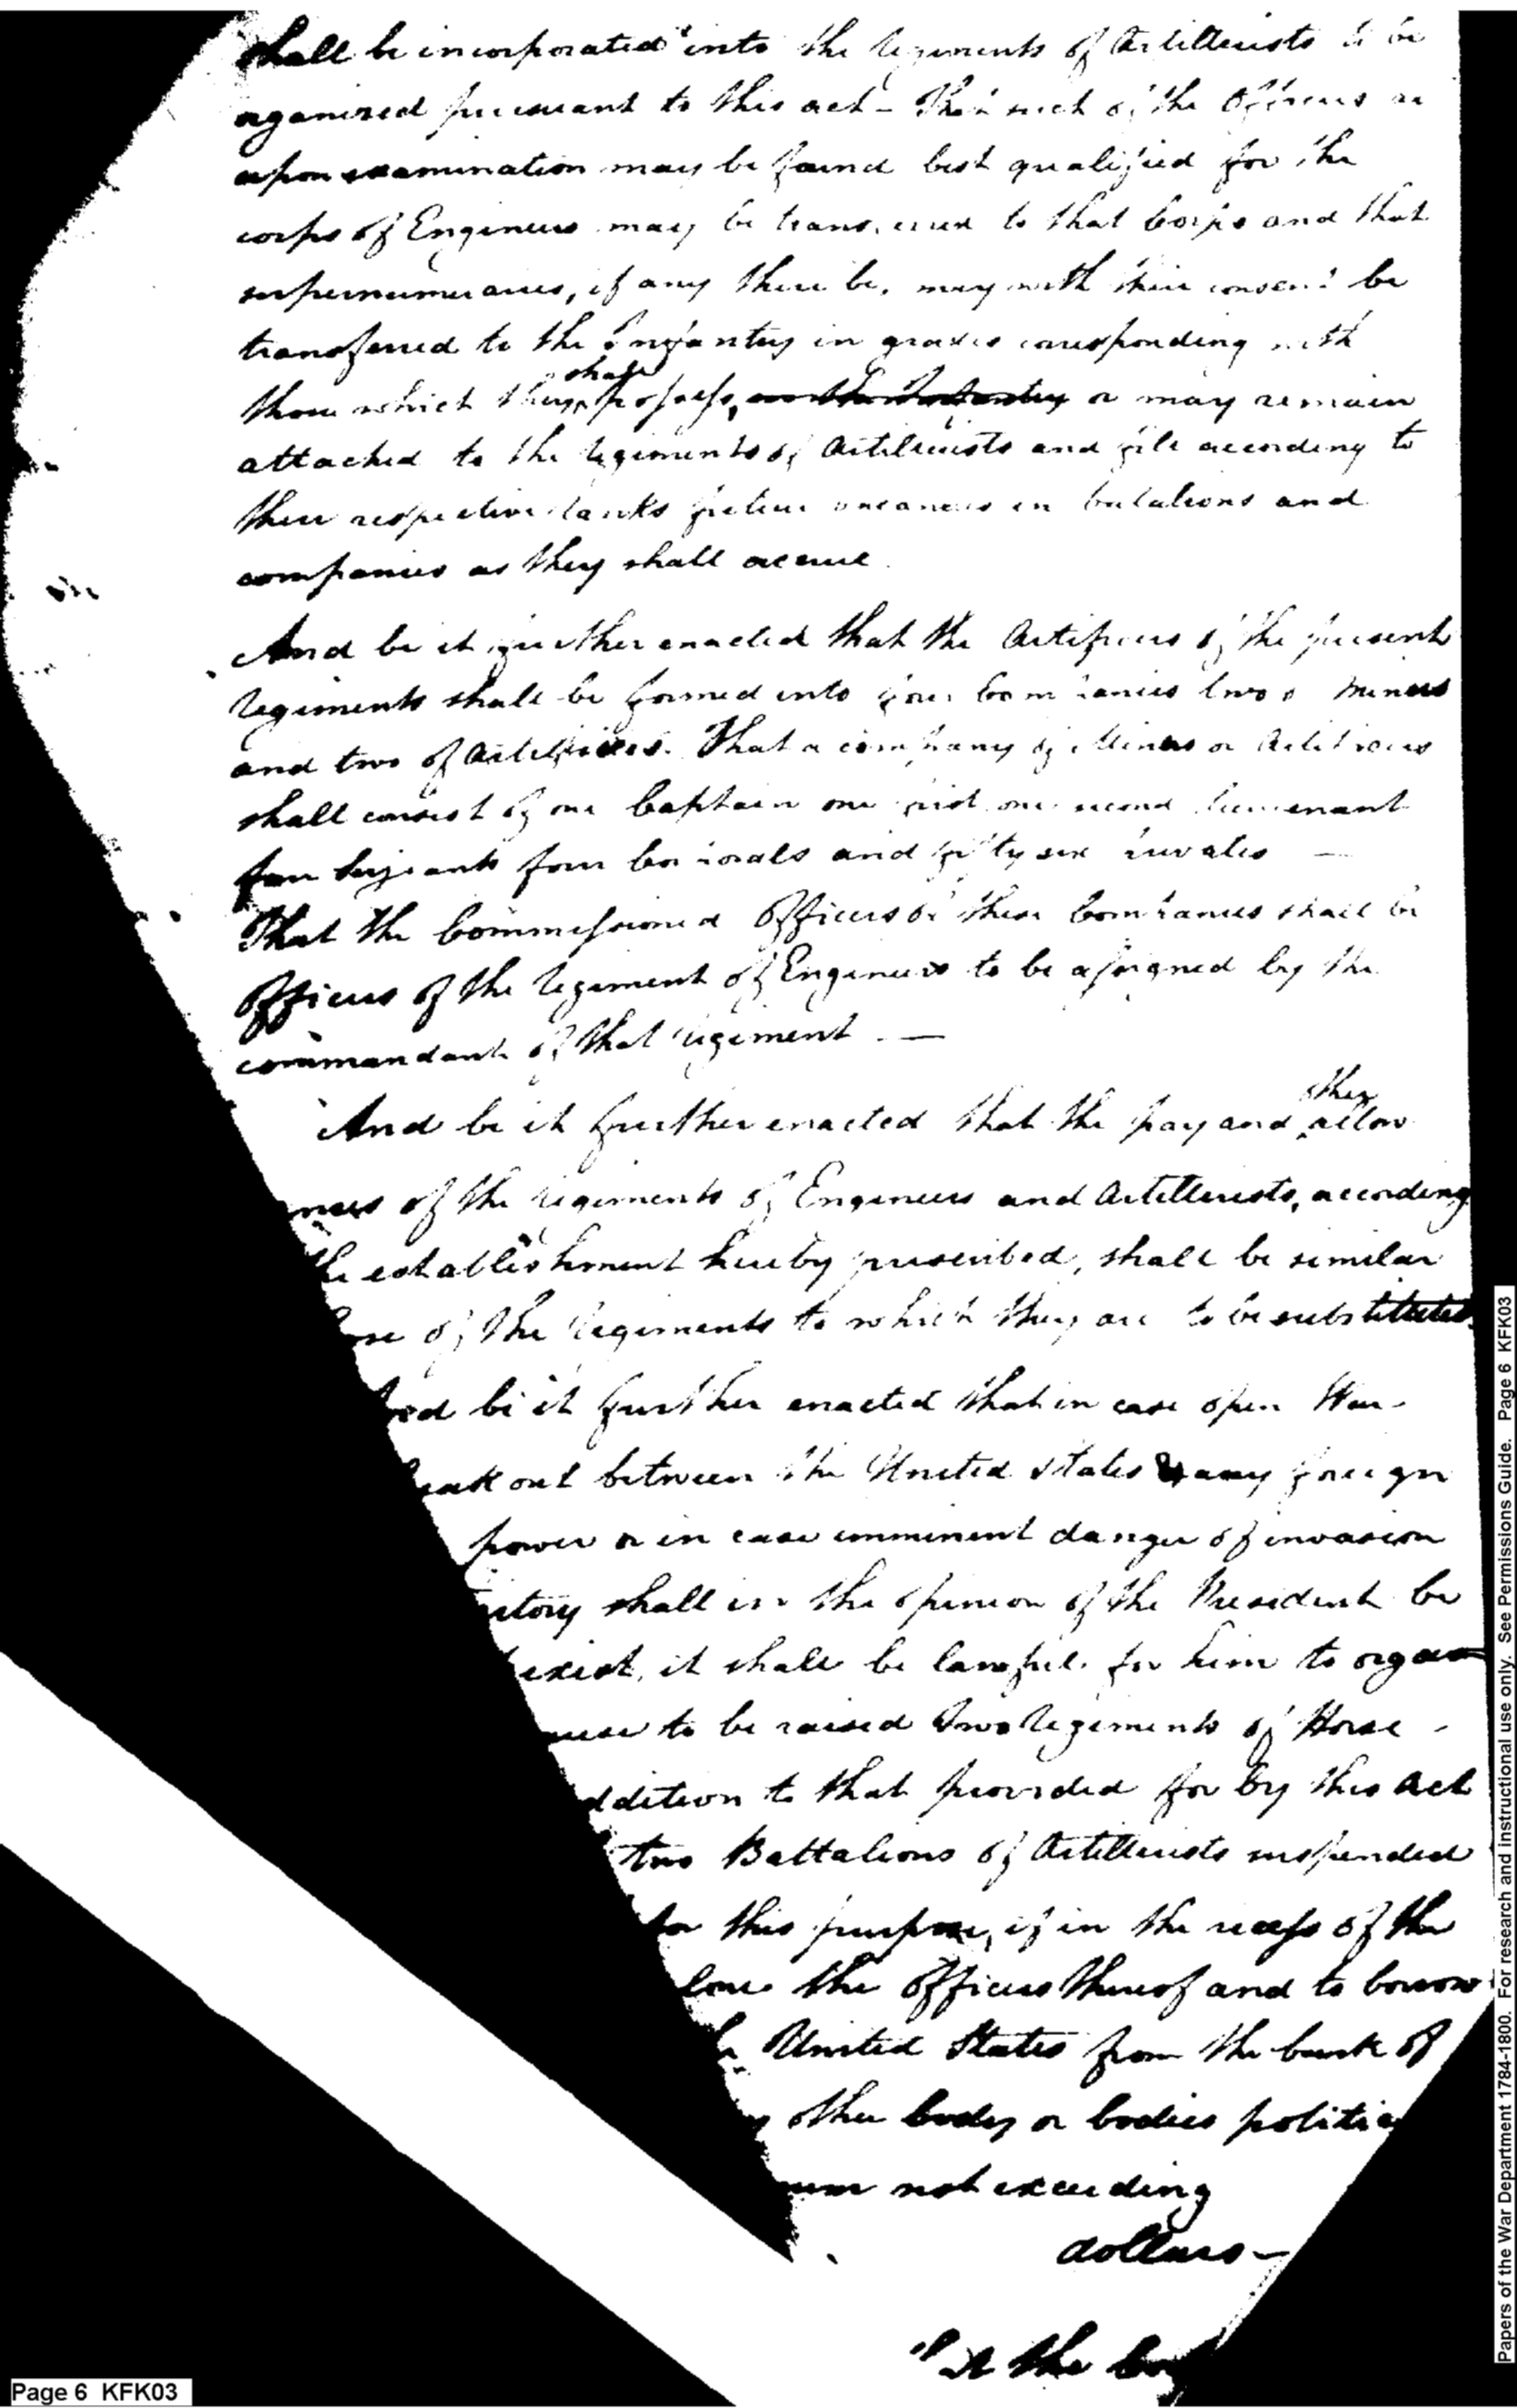 shall be incorporated into the regiments of Artillerists to be
organized pursuant to this act – That such of the Officers as
upon examination may be found best qualified for the
corps of Engineers may be transferred to that Corps and that
supernumeraries, if any there be, may with their consent be
transferred to the Infantry in grades corresponding with
shall
those which they possess, or may remain
attached to the regiments of Artillerists and fill according to
their respective ranks future vacancies in batalions and
companies as they shall accrue.
And be it further enacted that the Artificers of the present
regiments shall be formed into four Companies two of Miners
and two of Artificers. That a company of Miners or Artificers
shall consist of one Captain one first one second lieutenant
four Serjeants four Corporals and fifty six privates —
That the Commissioned Officers of these Companies shall be
Officers of the regiment of Engineers to be assigned by the
commandant of that regiment. —
other
And be it further enacted that the pay and allow
ances of the regiments of Engineers and Artillerists, according
the establishment hereby prescribed, shall be similar
ose of the regiments to which they are to be substituted.
And be it further enacted that in case open War
reak out between the United States & any foreign
power or in case imminent danger of invasion
ritory shall in the opinion of the President be
exist, it shall be lawful for him to organ
ause to be raised two regiments of Horse –
ddition to that provided for by this Act
two Battalions of Artillerists suspended
for this purpose, if in the recess of the
the Officers thereof and to borrow
United States from the bank of
y other body or bodies politic
sum not exceeding
dollars –
the
Page 6 KFK03
Papers of the War Department 1784-1800. For research and instructional use only. See Permissions Guide. Page 6 KFK03